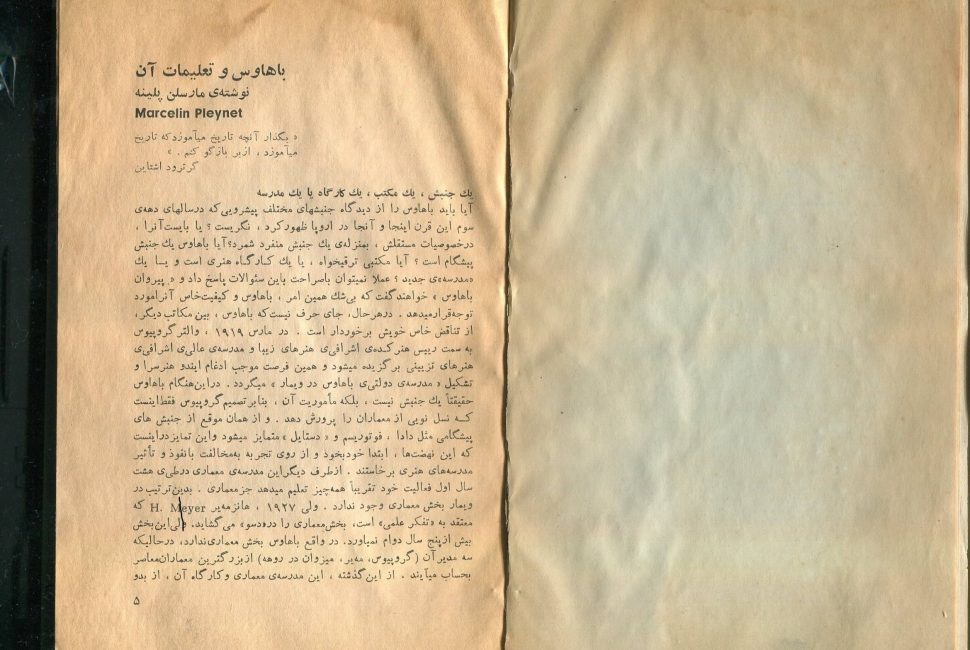 باهاوس و تعلیمات آن
نوشته‌ی مارسلن پلینه
Marcelin Pleynet
« بگذار آنچه تاریخ میآموزد که تاریخ
میآموزد ، ازبر بازگو کنم . »
گرترود اشتاین
یك جنبش ، یك مکتب ، یك کارگاه یا یك مدرسه
آیا باید باهاوس را از دیدگاه جنبشهای مختلف پیشرویی‌که درسالهای دهه‌ی
سوم این قرن اینجا و آنجا در اروپا ظهورکرد ، نگریست ؟ یا بایست‌آنرا ،
درخصوصیات مستقلش ، بمنزله‌ی یك جنبش منفرد شمرد؟ آیا باهاوس یك جنبش
پیشگام است ؟ آیا مکتبی ترقیخواه ، یا یك کارگاه هنری است و یا یك
«مدرسه‌ی جدید ؟ عملا نمیتوان باصراحت باین سئوالات پاسخ داد و « پیروان
باهاوس » خواهندگفت که بی‌شك همین امر ، باهاوس و کیفیت‌خاص آنرامورد
توجه‌قرارمیدهد . درهرحال، جای حرف نیست‌که باهاوس ، بین مکاتب دیگر،
از تناقض خاص خویش برخوردار است . در مارس ۱۹۱۹ ، والترگروپیوس
به سمت رییس هنرکده‌ی اشرافی‌ی هنرهای زیبا و مدرسه‌ی عالی‌ی اشرافی‌ی
هنرهای تزیینی برگزیده میشود و همین فرصت موجب ادغام ایندو هنرسرا و
تشکیل « مدرسه‌ی دولتی‌ی باهاوس در ویمار » میگردد . دراین‌هنگام باهاوس
حقیقتاً یك جنبش نیست ، بلکه مأموریت آن ، بنابرتصمیم‌گروپیوس فقط‌اینست
که نسل نویی از معماران را پرورش دهد . و از همان موقع از جنبش های
پیشگامی مثل دادا ، فوتوریسم و « دستایل » متمایز میشود واین تمایزدراینست
که این نهضت‌ها ، ابتدا خودبخود و از روی تجربه به‌مخالفت بانفوذ و تأثیر
مدرسه‌های هنری برخاستند . ازطرف دیگراین مدرسه‌ی معماری درطی‌ی هشت
سال اول فعالیت خود تقریباً همه‌چیز تعلیم میدهد جزمعماری . بدین‌ترتیب‌در
ویمار بخش معماری وجود ندارد . ولی ۱۹۲۷ ، هانزمه‌یر H. Meyer که
معتقد به «تفکر علمی» است، بخش‌معماری را دردسو» می گشاید. ولی‌این‌بخش
بیش ازپنج سال دوام نمیاورد. در واقع باهاوس بخش معماری‌ندارد، درحالیکه
سه مدیرآن (گروپیوس، مه‌یر، میزوان در روهه) ازبزرگترین معماران‌معاصر
بحساب میآیند . از این‌گذشته ، این مدرسه‌ی معماری وکارگاه آن ، از بدو
۵